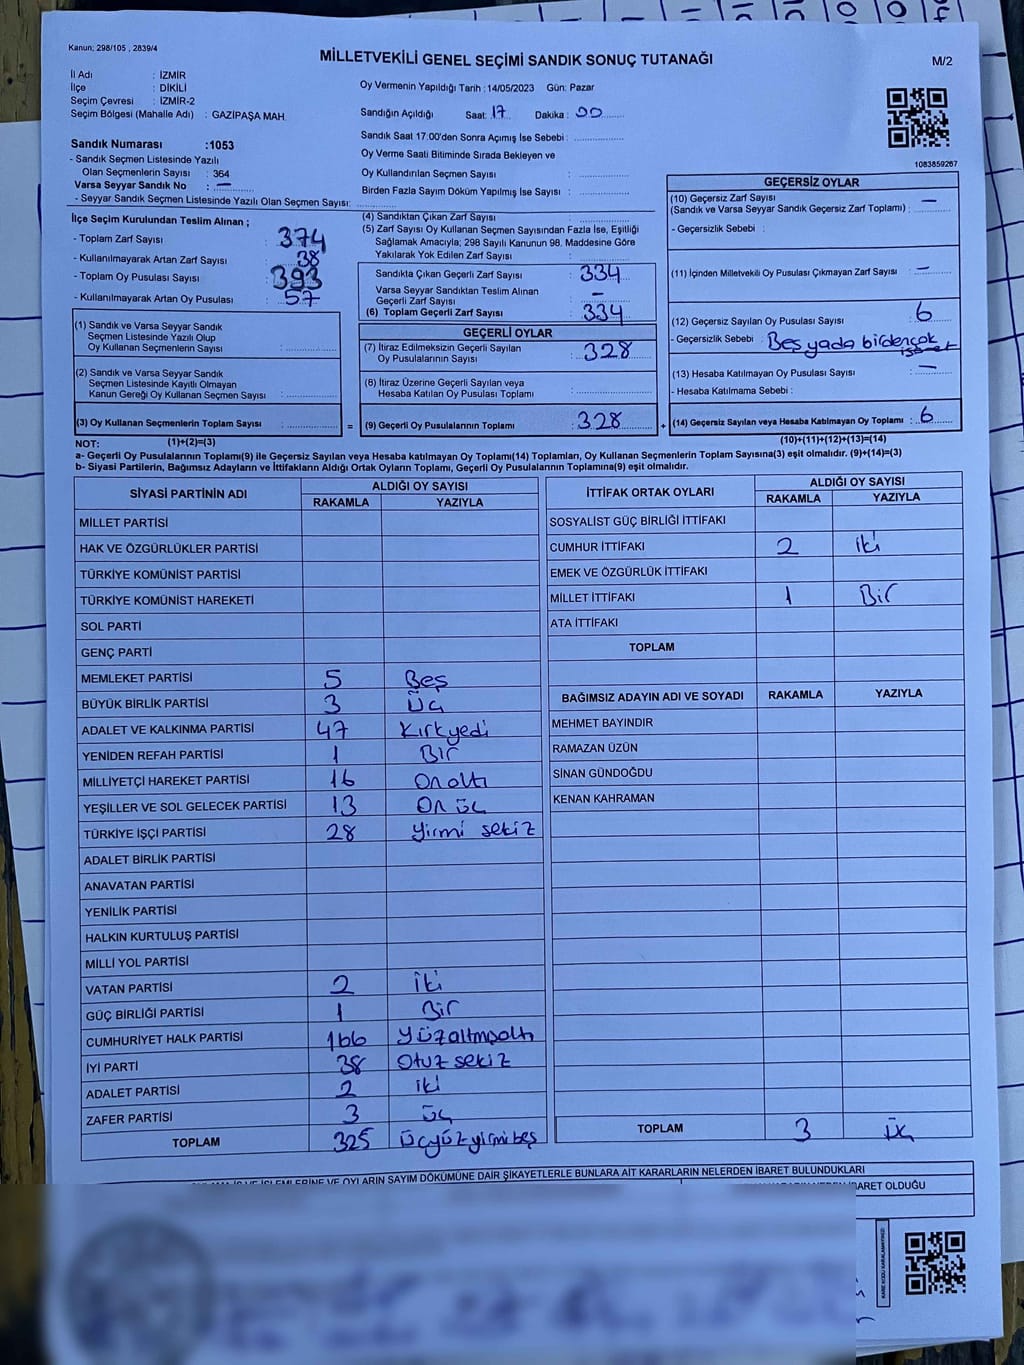 Kanun; 298/105 , 2839/4
MİLLETVEKİLİ GENEL SEÇİMİ SANDIK SONUÇ TUTANAĞI
M/2
İl Adı : İZMİR
İlçe : DİKİLİ
Seçim Çevresi : İZMİR-2
Seçim Bölgesi (Mahalle Adı) : GAZİPAŞA MAH.
Oy Vermenin Yapıldığı Tarih : 14/05/2023 Gün: Pazar
Sandığın Açıldığı Saat: 17 Dakika : 00
Sandık Saat 17:00'den Sonra Açımış İse Sebebi :
Oy Verme Saati Bitiminde Sırada Bekleyen ve
Oy Kullandırılan Seçmen Sayısı :
Birden Fazla Sayım Döküm Yapılmış İse Sayısı :
1083859267
Sandık Numarası :1053
- Sandık Seçmen Listesinde Yazılı
Olan Seçmenlerin Sayısı : 364
Varsa Seyyar Sandık No : —
- Seyyar Sandık Seçmen Listesinde Yazılı Olan Seçmen Sayısı:
İlçe Seçim Kurulundan Teslim Alınan ;
- Toplam Zarf Sayısı : 374
- Kullanılmayarak Artan Zarf Sayısı : 38
- Toplam Oy Pusulası Sayısı : 393
- Kullanılmayarak Artan Oy Pusulası : 57
(4) Sandıktan Çıkan Zarf Sayısı :
(5) Zarf Sayısı Oy Kullanan Seçmen Sayısından Fazla İse, Eşitliği
Sağlamak Amacıyla; 298 Sayılı Kanunun 98. Maddesine Göre
Yakılarak Yok Edilen Zarf Sayısı :
Sandıkta Çıkan Geçerli Zarf Sayısı : 334
Varsa Seyyar Sandıktan Teslim Alınan
Geçerli Zarf Sayısı : —
(6) Toplam Geçerli Zarf Sayısı : 334
GEÇERLİ OYLAR
(7) İtiraz Edilmeksizin Geçerli Sayılan
Oy Pusulalarının Sayısı : 328
(8) İtiraz Üzerine Geçerli Sayılan veya
Hesaba Katılan Oy Pusulaları Toplamı :
(9) Geçerli Oy Pusulalarının Toplamı : 328
GEÇERSİZ OYLAR
(10) Geçersiz Zarf Sayısı
(Sandık ve Varsa Seyyar Sandık Geçersiz Zarf Toplamı) : —
- Geçersizlik Sebebi :
(11) İçinden Milletvekili Oy Pusulası Çıkmayan Zarf Sayısı : —
(12) Geçersiz Sayılan Oy Pusulası Sayısı : 6
- Geçersizlik Sebebi : Boş yada birdençok
işaret
(13) Hesaba Katılmayan Oy Pusulası Sayısı : —
- Hesaba Katılmama Sebebi :
(14) Geçersiz Sayılan veya Hesaba Katılmayan Oy Toplamı : 6
(1) Sandık ve Varsa Seyyar Sandık
Seçmen Listesinde Yazılı Olup
Oy Kullanan Seçmenlerin Sayısı :
(2) Sandık ve Varsa Seyyar Sandık
Seçmen Listesinde Kayıtlı Olmayan
Kanun Gereği Oy Kullanan Seçmen Sayısı :
(3) Oy Kullanan Seçmenlerin Toplam Sayısı : =
+
NOT: (1)+(2)=(3)
(10)+(11)+(12)+(13)=(14)
a- Geçerli Oy Pusulasının Toplamı(9) ile Geçersiz Sayılan veya Hesaba katılmayan Oy Toplamı(14) Toplamları, Oy Kullanan Seçmenlerin Toplam Sayısına(3) eşit olmalıdır. (9)+(14)=(3)
b- Siyasi Partilerin, Bağımsız Adayların ve İttifakların Aldığı Ortak Oyların Toplamı, Geçerli Oy Pusulalarının Toplamına(9) eşit olmalıdır.
SİYASİ PARTİNİN ADI ALDIĞI OY SAYISI
RAKAMLA YAZIYLA
MİLLET PARTİSİ
HAK VE ÖZGÜRLÜKLER PARTİSİ
TÜRKİYE KOMÜNİST PARTİSİ
TÜRKİYE KOMÜNİST HAREKETİ
SOL PARTİ
GENÇ PARTİ
MEMLEKET PARTİSİ 5 Beş
BÜYÜK BİRLİK PARTİSİ 3 Üç
ADALET VE KALKINMA PARTİSİ 47 Kırkyedi
YENİDEN REFAH PARTİSİ 1 Bir
MİLLİYETÇİ HAREKET PARTİSİ 16 Onaltı
YEŞİLLER VE SOL GELECEK PARTİSİ 13 On üç
TÜRKİYE İŞÇİ PARTİSİ 28 Yirmi sekiz
ADALET BİRLİK PARTİSİ
ANAVATAN PARTİSİ
YENİLİK PARTİSİ
HALKIN KURTULUŞ PARTİSİ
MİLLİ YOL PARTİSİ
VATAN PARTİSİ 2 İki
GÜÇ BİRLİĞİ PARTİSİ 1 Bir
CUMHURİYET HALK PARTİSİ 166 Yüzaltmışaltı
İYİ PARTİ 38 Otuz sekiz
ADALET PARTİSİ 2 iki
ZAFER PARTİSİ 3 üç
TOPLAM 325 Üçyüzyirmibeş
İTTİFAK ORTAK OYLARI ALDIĞI OY SAYISI
RAKAMLA YAZIYLA
SOSYALİST GÜÇ BİRLİĞİ İTTİFAKI
CUMHUR İTTİFAKI 2 İki
EMEK VE ÖZGÜRLÜK İTTİFAKI
MİLLET İTTİFAKI 1 Bir
ATA İTTİFAKI
TOPLAM
BAĞIMSIZ ADAYIN ADI VE SOYADI RAKAMLA YAZIYLA
MEHMET BAYINDIR
RAMAZAN ÜZÜN
SİNAN GÜNDOĞDU
KENAN KAHRAMAN
TOPLAM 3 üç
İŞLEMLERİNE VE OYLARIN SAYIM DÖKÜMÜNE DAİR ŞİKAYETLERLE BUNLARA AİT KARARLARIN NELERDEN İBARET BULUNDUKLARI
İBARET OLDUĞU